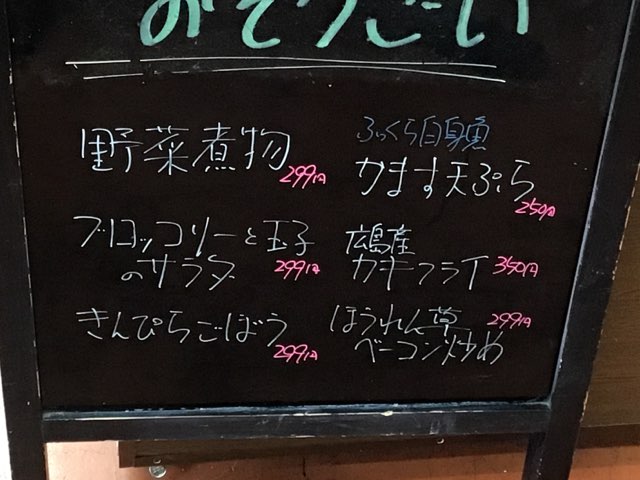 おそうざい
野菜煮物
299円
ブロッコリーと玉子
のサラダ 299円
きんぴらごぼう
299円
ふっくら白身魚
かます天ぷら
250円
広島産
カキフライ 350円
ほうれん草 299円
ベーコン炒め